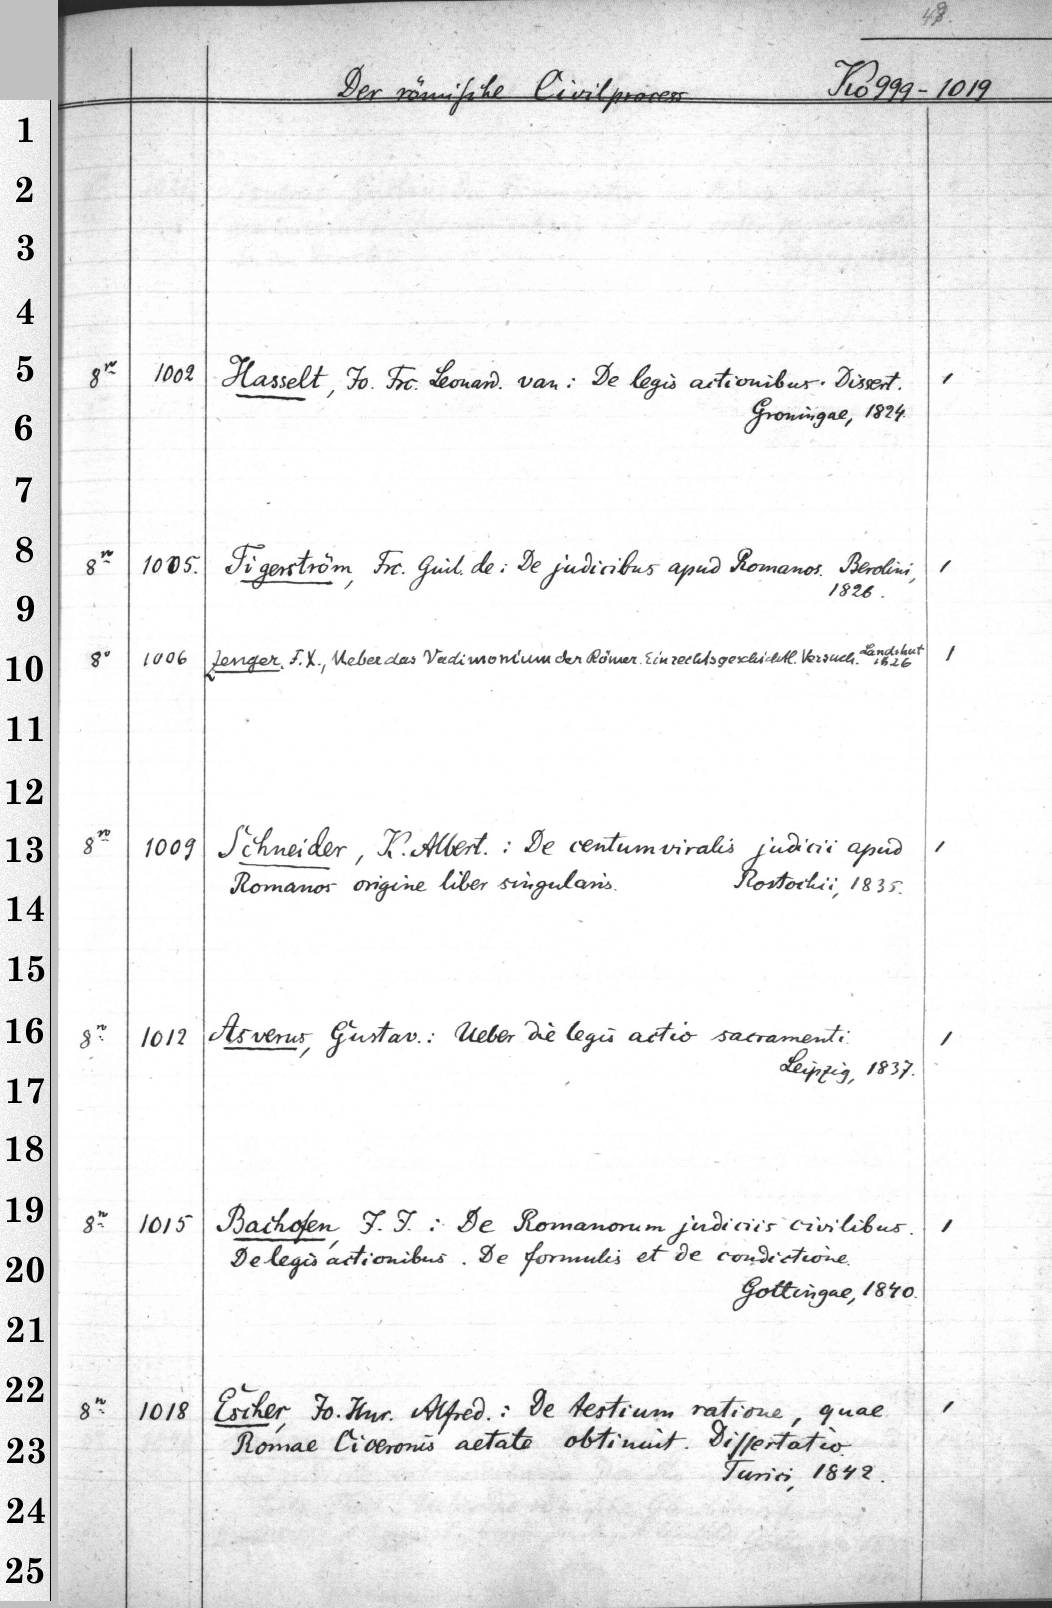 48.
Der römische Civilprocess Ko 999-1019
1
2
3
4
5
8vo 1002 Hasselt, Jo. Frc. Leonard. van: De legis actionibus. Dissert. 1
Groningae, 1824.
6
7
8
8vo 1005. Tigerström, Frc. Guil. de: De judicibus apud Romanos. Berolini, 1
1826.
9
8° 1006 Zenger, F. X., Ueber das Vadimonium der Römer. Ein rechtsgeschichtl. Versuch. Landshut 1826 1
10
11
12
13
8vo 1009 Schneider, K. Albert.: De centumviralis judicii apud 1
Romanos origine liber singularis. Rostochii, 1835.
14
15
16
8vo 1012 Asverus, Gustav.: Ueber die legis actio sacramenti. 1
Leipzig, 1837.
17
18
19
8vo 1015 Bachofen, J. J.: De Romanorum judiciis civilibus. 1
De legis actionibus. De formulis et de condictione.
20
Gottingae, 1840.
21
22
8vo 1018 Escher, Jo. Hnr. Alfred.: De testium ratione, quae 1
Romae Ciceronis aetate obtinuit. Dissertatio.
23
Turici, 1842.
24
25